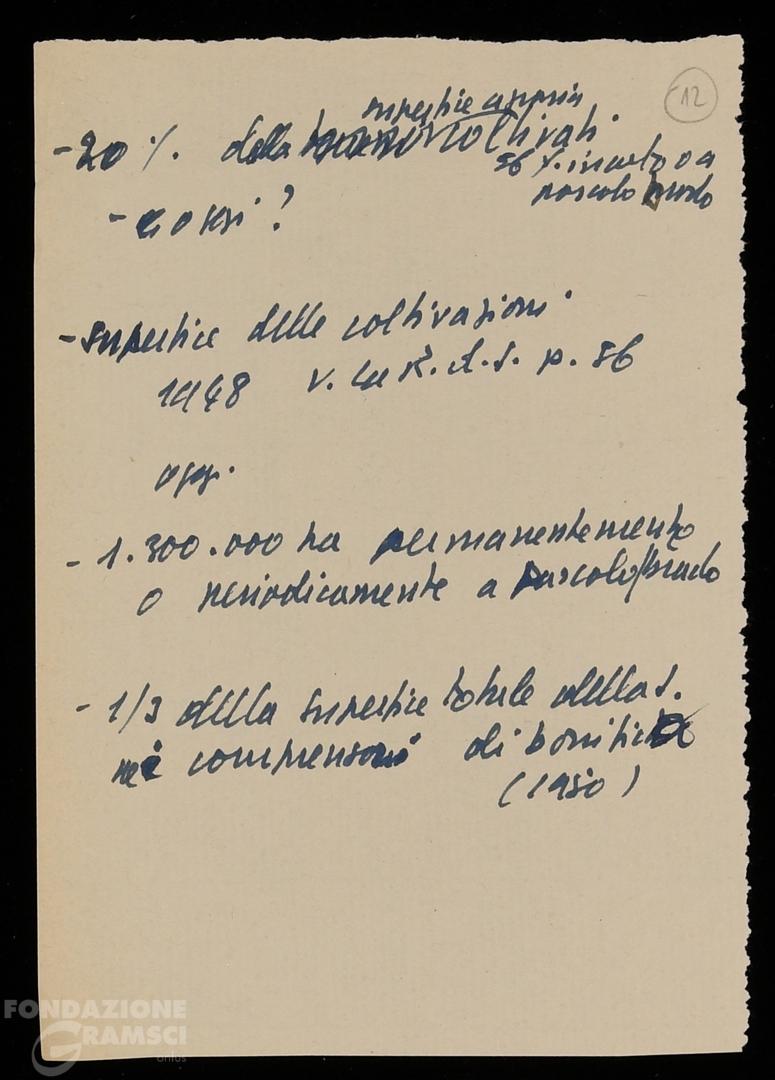 12
superficie agraria
- 20 %. della coltivati.
56 %. incolto o a
pascolo brado
- e oggi?
- superficie delle coltivazioni
1948 v. La R. d. S. p. 56
oggi.
- 1.300.000 ha permanentemente
o periodicamente a pascolo brado
- 1/3 della superficie totale della S.
nei comprensori di bonifica
(1950)
FONDAZIONE
GRAMSCI
onlus